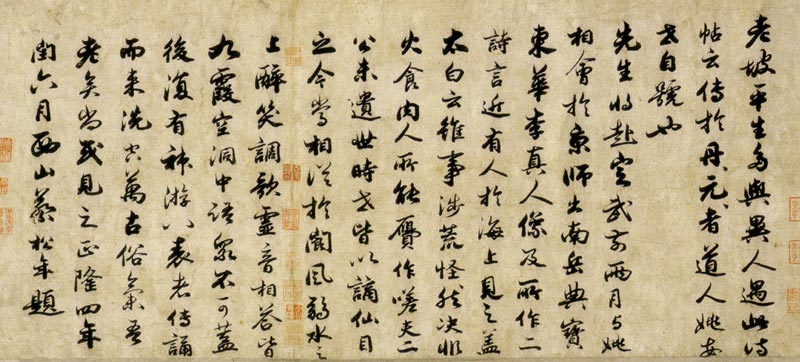 老坡平生多與異人遇此詩
帖云傳於丹元者道人姚安
世自號也
先生將赴定武前兩月與姚
相會於京師出南岳典寶
東華李真人像及所作二
詩言近有人於海上見之蓋
太白云雖事涉荒怪然決非
火食肉人所能贗作嗟夫二
公未遺世時世皆以謫仙目
之今當相從於閬風弱水之
上醉笑調歌靈音相答皆
九霞空洞中語衆不可蓋
後復有神游八表者傳誦
而來洗空萬古俗氣吾
老矣尚或見之正隆四年
閏六月西山蔡松年題